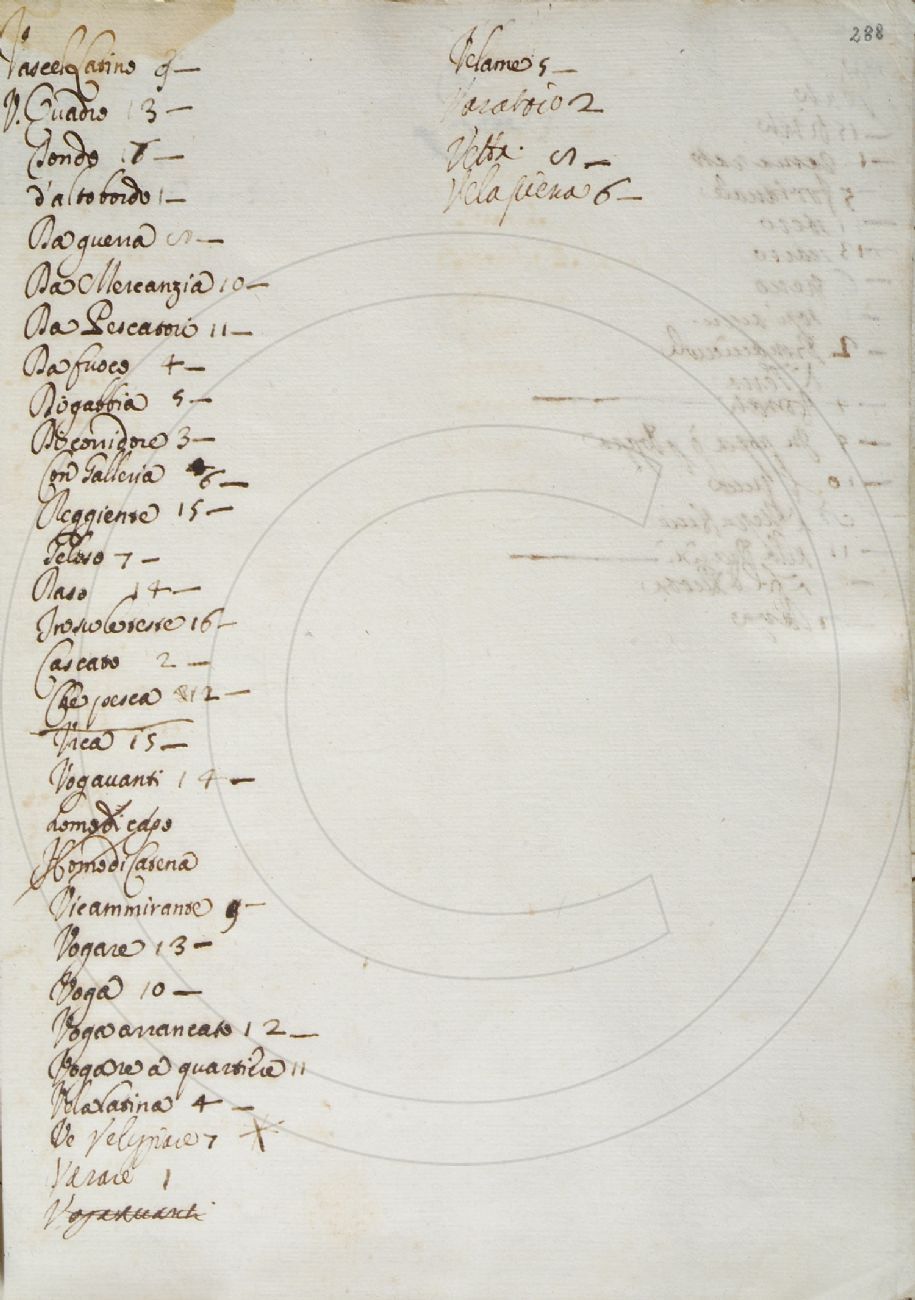 288
Vascel Latino 9 —
V. Quadro 13 —
Tondo 16 —
d'alto bordo 1 —
Da guerra 8 —
Da Mercanzia 10 —
Da Pescatori 11 —
Da fuoco 4 —
Di gabbia 5 —
Di corridore 3 —
Con Galleria 6 —
Reggiente 15 —
Geloso 7 —
Raso 14 —
In su le teste 16 —
Cascato 2 —
Che pesca 12 —
Vica 15 —
Vogavanti 14 —
homo di capo
Homo di Catena
Viceammirante 9 —
Vogare 13 —
Voga 10 —
Voga arrancato 12 —
Vogare a quartiere 11
Vela Latina 4 —
Ve 7
Varare 1
Vogavanti
Velame 5 —
Varatoio 2
Vetta. 8 —
Vela piena 6 —